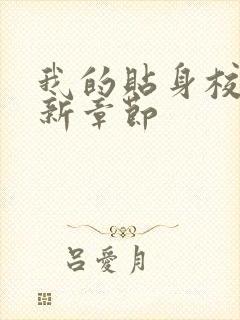 我的貼身校
新章節
呂愛月